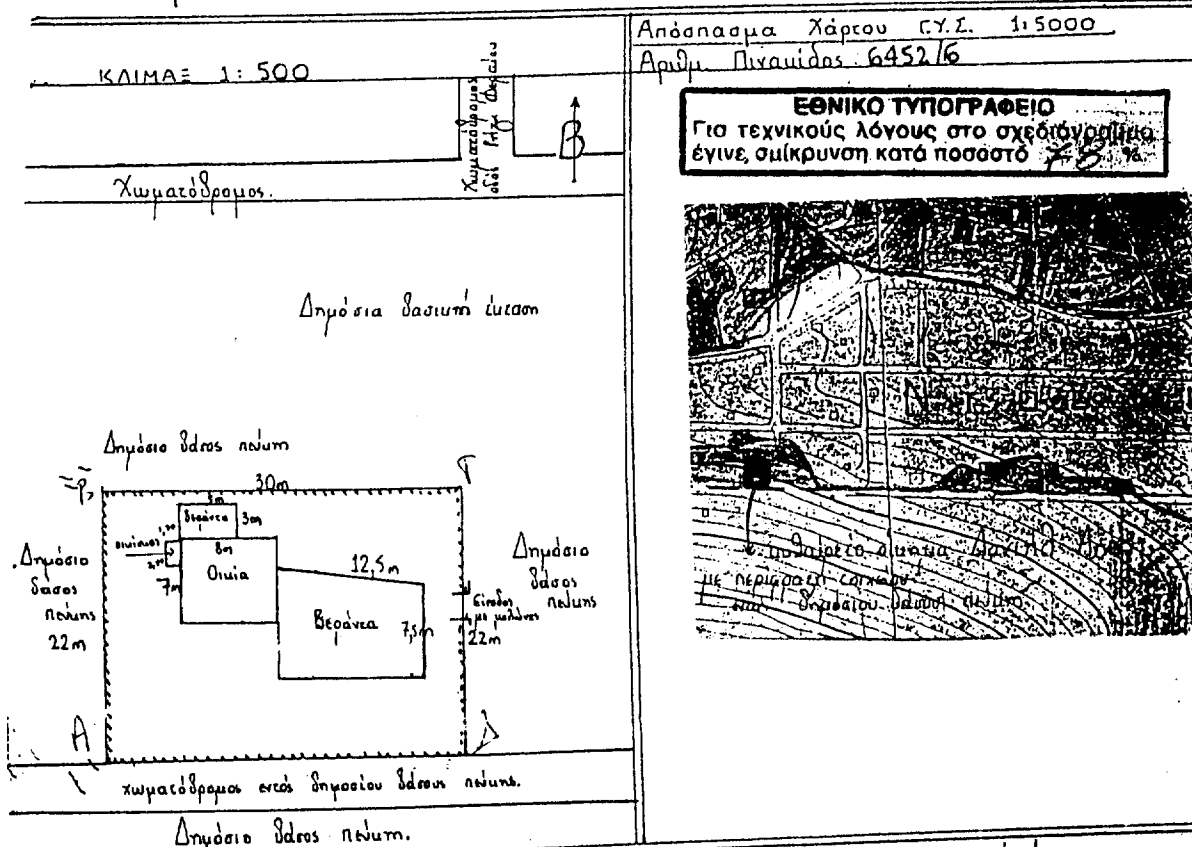 ΚΛΙΜΑΞ 1: 500
Χωματόδρομος
οδός
Β
Χωματόδρομος.
Δημόσια δασική έκταση
Δημόσιο δάσος πεύκης
30m
Γ
Βεράντα
3m
8m
Οικία
7m
12,5m
Βεράντα
7,5m
Είσοδος
22m
Δημόσιο
δάσος
πεύκης
22m
Δημόσιο
δάσος
πεύκης
Α
Δ
χωματόδρομος εντός δημοσίου δάσους πεύκης.
Δημόσιο δάσος πεύκης.
Απόσπασμα Χάρτου Γ.Υ.Σ. 1:5000
Αριθμ. Πινακίδος 6452/6
ΕΘΝΙΚΟ ΤΥΠΟΓΡΑΦΕΙΟ
Για τεχνικούς λόγους στο σχεδιάγραμμα
έγινε σμίκρυνση κατά ποσοστό 78 %
αυθαίρετο οίκημα
με περίφραξη
δημοσίου δάσους πεύκης